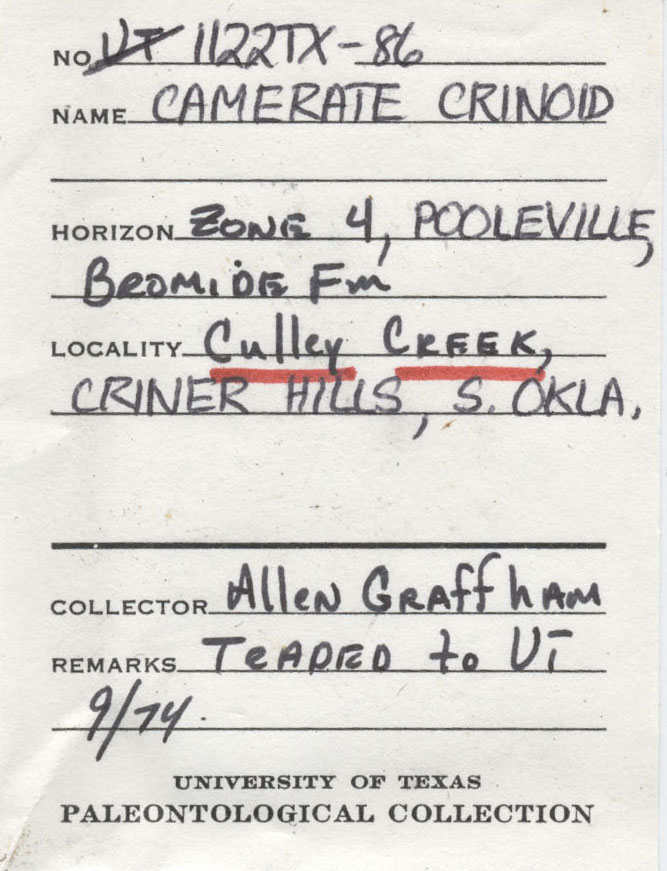 NO. UT 1122TX-86
NAME CAMERATE CRINOID
HORIZON ZONE 4, POOLEVILLE,
BROMIDE Fm
LOCALITY Culley CREEK,
CRINER HILLS, S. OKLA.
COLLECTOR Allen GRAffhAM
REMARKS TRADED to UT
9/74.
UNIVERSITY OF TEXAS
PALEONTOLOGICAL COLLECTION